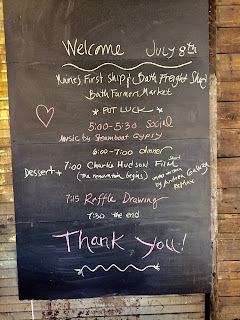 Welcome July 8th
Maine's First Ship & Bath Freight Shed
Bath Farmers Market
* POT LUCK *
5:00-5:30 Social
Music by Steamboat Gypsy
6:00-7:00 dinner
Dessert + 7:00 Charlie Hudson Film short
(The renovation begins)
by Andrea Galuza
7:15 Raffle Drawing
7:30 the end
Thank You!